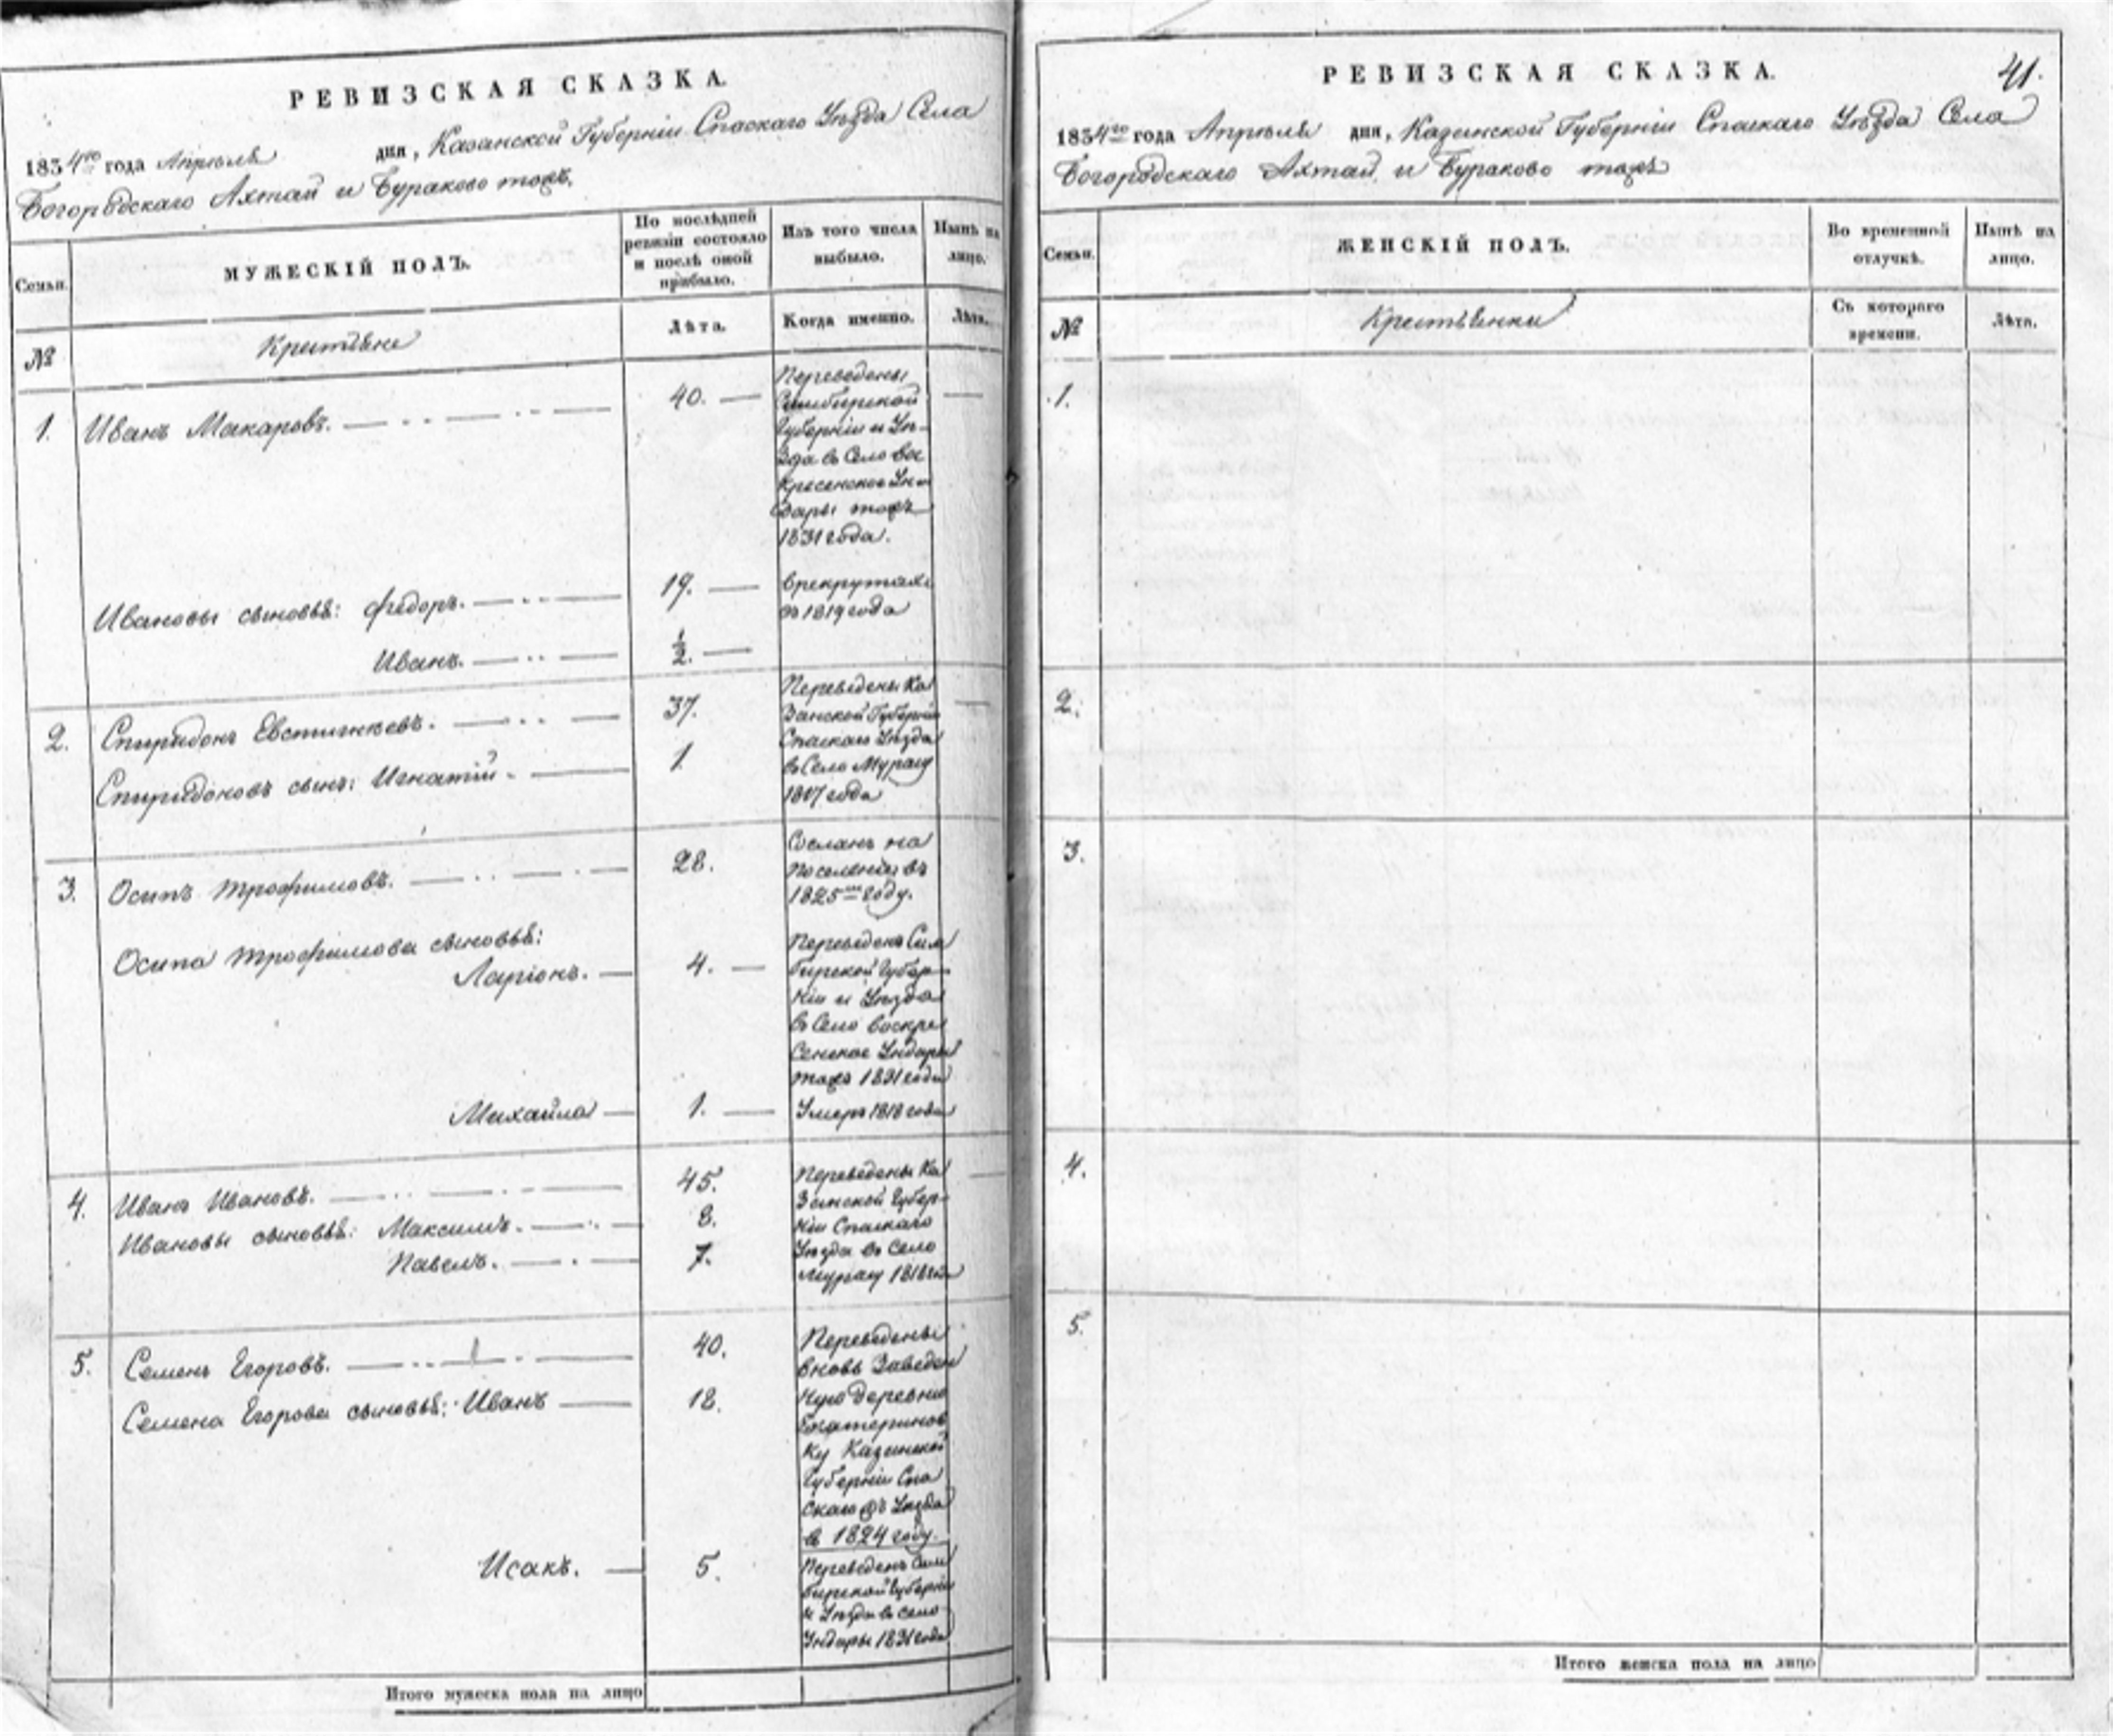 РЕВИЗСКАЯ СКАЗКА.
1834го года Апреля дня, Казанской Губерніи Спаскаго Уѣзда Села
Богородскаго Ахтай и Бураково тожъ.
Семьи.
МУЖЕСКІЙ ПОЛЪ.
По послѣдней ревизіи состояло и послѣ оной прибыло.
Изъ того числа выбыло.
Нынѣ на лицо.
№
Крестьяне
Лѣта.
Когда именно.
Лѣта.
1. Иванъ Макаровъ. 40.
Переведены
Симбирской
Губерніи и Уѣ-
зда въ Село Вос
кресенское Ун
доры тожъ
1831 года.
Ивановы сыновья: Федоръ. 19.
в рекрутахъ
съ 1819 года
Иванъ. ½.
2. Спиридонъ Евстигнѣевъ. 37.
Спиридоновъ сынъ: Игнатій. 1
Переведены Ка
занской Губерніи
Спаскаго Уѣзда
въ Село Мурасу
1817 года
3. Осипъ Трофимовъ. 28.
Сосланъ на
поселеніе въ
1825мъ году.
Осипа Трофимова сыновья:
Ларіонъ. 4.
Переведенъ Сим
бирской Губер-
ніи и Уѣзда
въ Село Воскре
сенское Ундоры
тожъ 1831 года
Михайла 1.
Умеръ 1818 года
4. Иванъ Ивановъ. 45.
Ивановы сыновья: Максимъ. 8.
Павелъ. 7.
Переведены Ка
занской Губер-
ніи Спаскаго
Уѣзда въ Село
Мурасу 1818 года
5. Семенъ Егоровъ. 40.
Семена Егорова сыновья: Иванъ 18.
Переведены
вновь Заведен
ную деревню
Екатеринов
ку Казанской
Губерніи Спа
скаго Уѣзда
въ 1824 году.
Исакъ. 5.
Переведенъ Сим
бирской Губерніи
и Уѣзда въ село
Ундоры 1831 года
Итого мужеска пола на лицо
41.
РЕВИЗСКАЯ СКАЗКА.
1834го года Апреля дня, Казанской Губерніи Спаскаго Уѣзда Села
Богородскаго Ахтай и Бураково тожъ
Семьи.
ЖЕНСКІЙ ПОЛЪ.
Во временной отлучкѣ.
Нынѣ на лицо.
№
Крестьянки
Съ котораго времени.
Лѣта.
1.
2.
3.
4.
5.
Итого женска пола на лицо